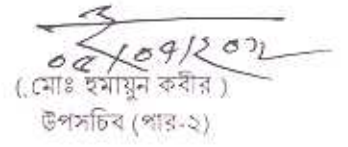 ০৫/০৭/২০১২
(মোঃ হুমায়ুন কবীর)
উপসচিব (পার-২)